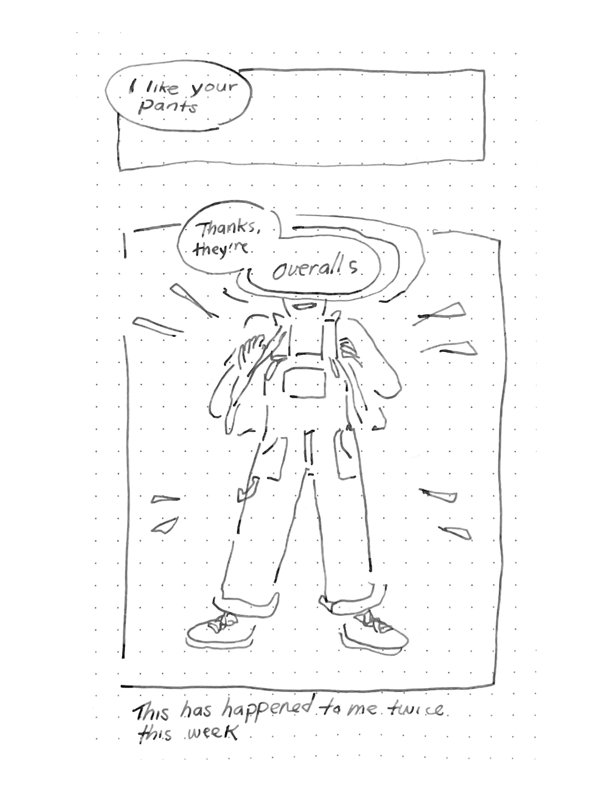 I like your
pants
Thanks,
they're
overalls
This has happened to me twice
this week